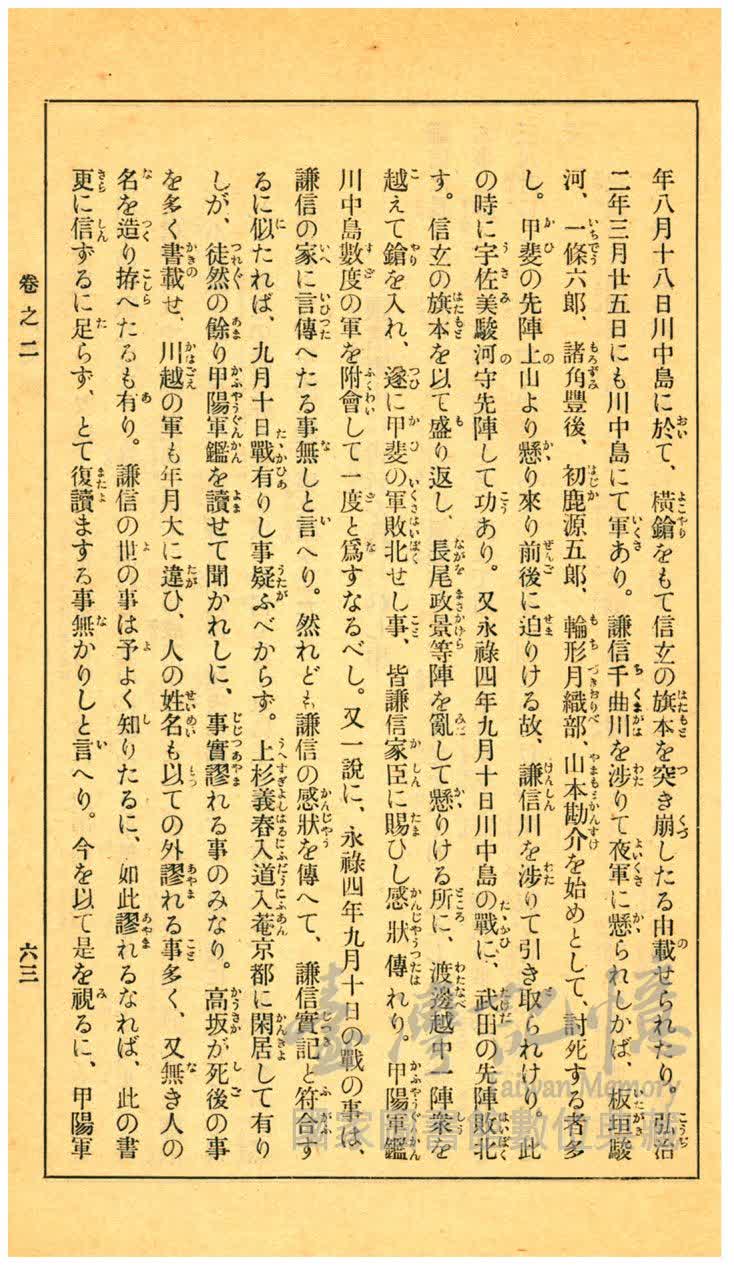 年八月十八日川中島に於て、橫鎗をもて信玄の旗本を突き崩したる由載せられたり。弘治
二年三月廿五日にも川中島にて軍あり。謙信千曲川を涉りて夜軍に懸られしかば、板垣駿
河、一條六郎、諸角豐後、初鹿源五郎、輪形月織部、山本勘介を始めとして、討死する者多
し。甲斐の先陣上山より懸り來り前後に迫りける故、謙信川を涉りて引き取られけり。此
の時に宇佐美駿河守先陣して功あり。又永祿四年九月十日川中島の戰に、武田の先陣敗北
す。信玄の旗本を以て盛り返し、長尾政景等陣を亂して懸りける所に、渡邊越中一陣衆を
越えて鎗を入れ、遂に甲斐の軍敗北せし事、皆謙信家臣に賜ひし感狀傳れり。甲陽軍鑑
川中島數度の軍を附會して一度と爲すなるべし。又一說に、永祿四年九月十日の戰の事は、
謙信の家に言傳へたる事無しと言へり。然れども謙信の感狀を傳へて、謙信實記と符合す
るに似たれば、九月十日戰有りし事疑ふべからず。上杉義春入道入菴京都に閑居して有り
しが、徒然の餘り甲陽軍鑑を讀せて聞かれしに、事實謬れる事のみなり。高坂が死後の事
を多く書載せ、川越の軍も年月大に違ひ、人の姓名も以ての外謬れる事多く、又無き人の
名を造り拵へたるも有り。謙信の世の事は予よく知りたるに、如此謬れるなれば、此の書
更に信ずるに足らず、とて復讀まする事無かりしと言へり。今を以て是を視るに、甲陽軍
卷之二
六三
臺灣記憶
Taiwan Memory
國家圖書館數位典藏